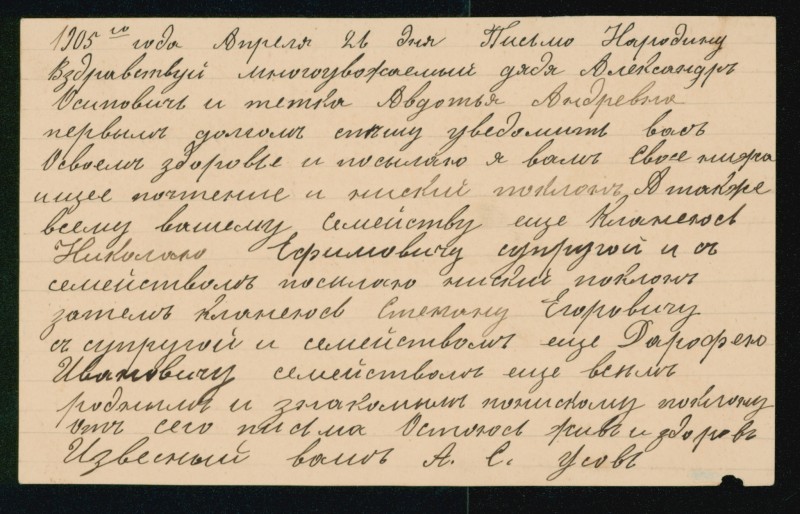 1905 го года Апреля 26 дня Письмо Народину
Вздравствуй многоуважаемый дядя Александръ
Осиповичъ и тетка Авдотья Андревна
первымъ долгомъ спешу уведомить васъ
Освоемъ здоровье и посылаю я вамъ Свое нижа
ищее почтение и ниский поклонъ, А также
всему вашему семейству еще Кланеюсь
Николаю Ефимовичу супругой и съ
семействомъ посылаю ниский поклонъ
затемъ кланеюсь Степану Егоровичу
съ супругой и семействомъ еще Дарофею
Ивановичу семействомъ еще всѣмъ
роднымъ и знакомымъ понискому поклону
отъ сего письма Остоюсь живъ и здоровъ
Извесный вамъ А. С. Усовъ